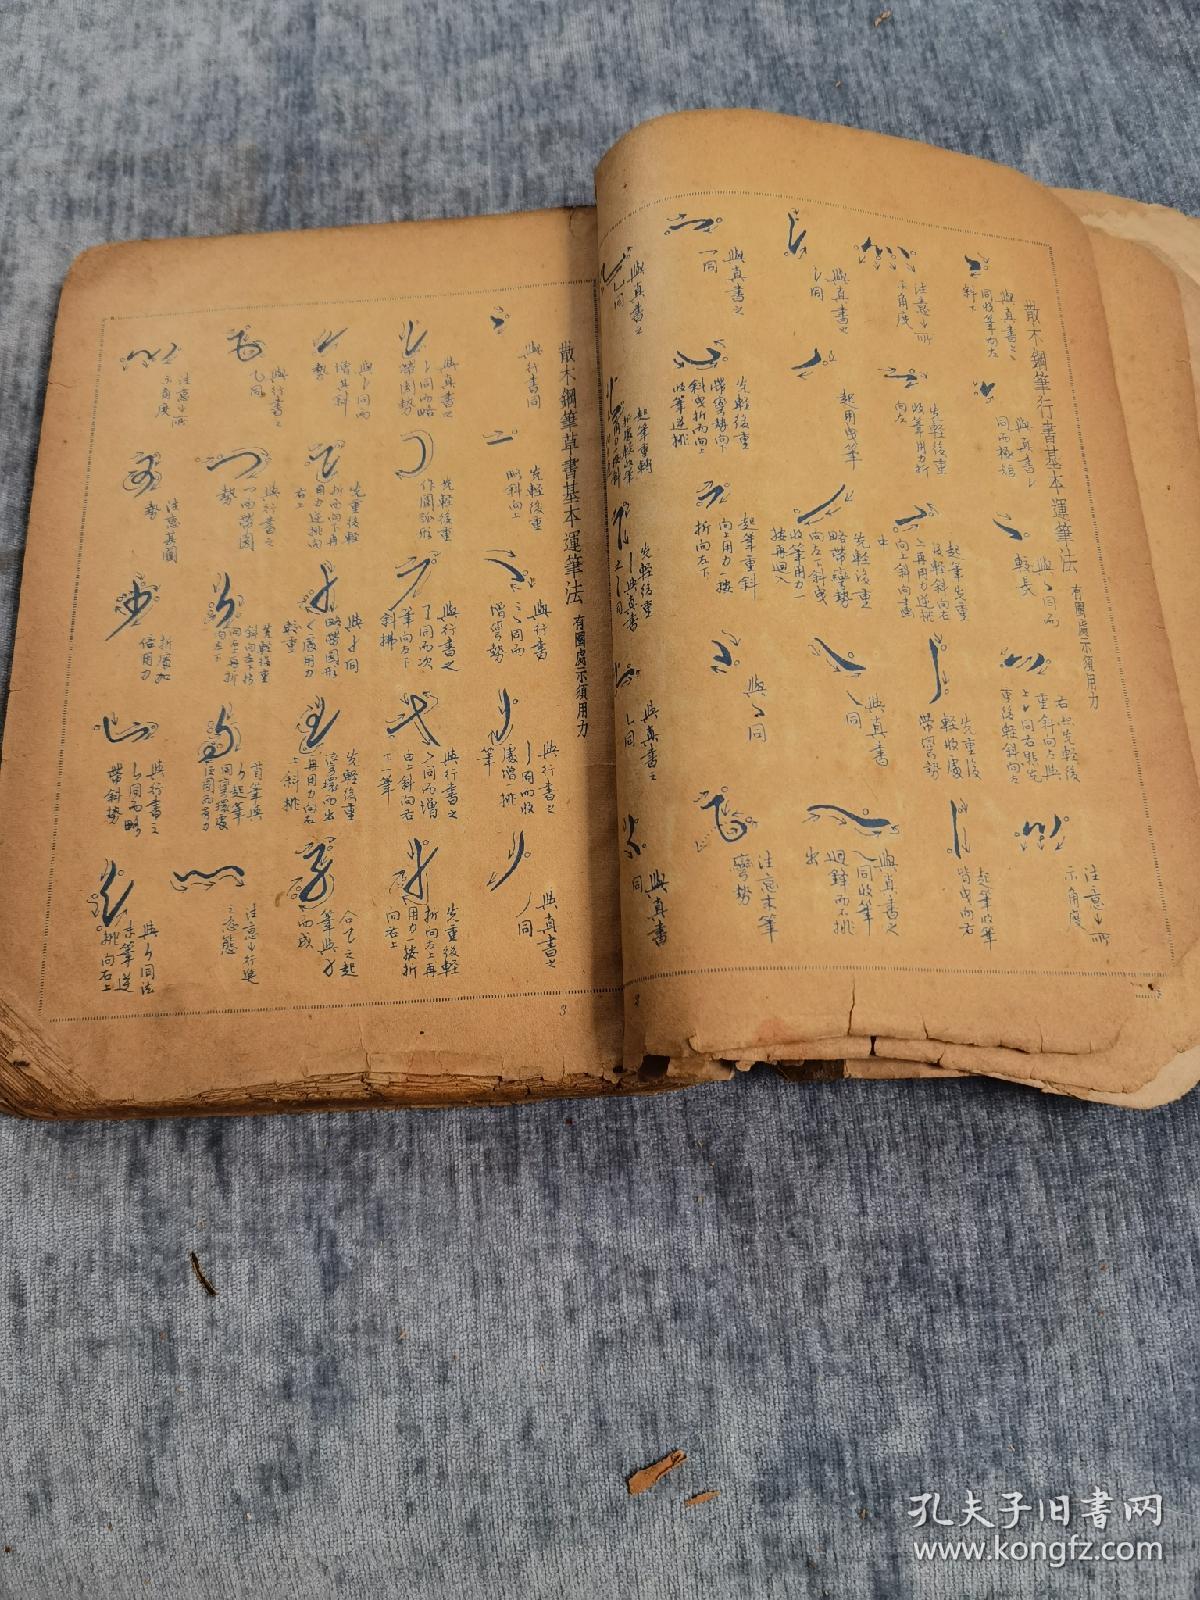 散木鋼筆行書基本運筆法
有圈處示須用力
與真書之
同收筆向左
斜上
與真書之
同而極短
與丶同而
較長
右點先輕後
重斜向左與
注意小所
示角度
注意小所
示角度
先輕後重
收筆用力折
向左
起筆先重
後輕斜向右
上再用力逆挑
向上斜向畫
出
先重後
輕收處
帶彎勢
起筆收筆
皆曳向右
與真書之
㇄同
起用曳筆
先輕後重
略帶彎勢
向左下斜曳
收筆用力一
按再迴入
與真書
乀同
與真書之
乀同收筆
迴鋒而不挑
出
與真書之
一同
先輕後重
帶彎勢向下
斜曳折而向上
收筆逆挑
起筆重斜
向上用力一按
折向左下
與丶同
注意末筆
彎勢
與真書之
乚同
先輕後重
與真書
與真書之
乚同
與真書
同
2
散木鋼筆草書基本運筆法
有圈處示須用力
與行書同
先輕後重
略斜向上
與行書
同而
增彎勢
與行書之
亅同而收
處增一挑
筆
與真書之
丿同
與真書之
㇄同而略
帶圓勢
先輕後重
作圓弧形
與行書之
了同而次
筆向左下
斜拂
與行書之
乀同而增
由上斜向右
下一筆
先重後輕
折向左上再
用力一按折
向右上
與㇄同而
增其斜
勢
先重後輕
折而向下再
用力逆挑向
右上
同
略帶圓形
處用力
較重
先輕後重
彎環而出
再用力向右
上斜挑
合之起
筆與
而成
與行書之
乙同
與行書之
一而帶圓
勢
先輕後重
斜向右
向上再折
向左下
首筆與
起筆
同彎環處
注意其行進
之姿態
注意小所
示角度
注意其圓
勢
折處加
倍用力
與行書之
乚同而略
帶斜勢
與同法
末筆逆
挑向右上
3
孔夫子旧書网
www.kongfz.com